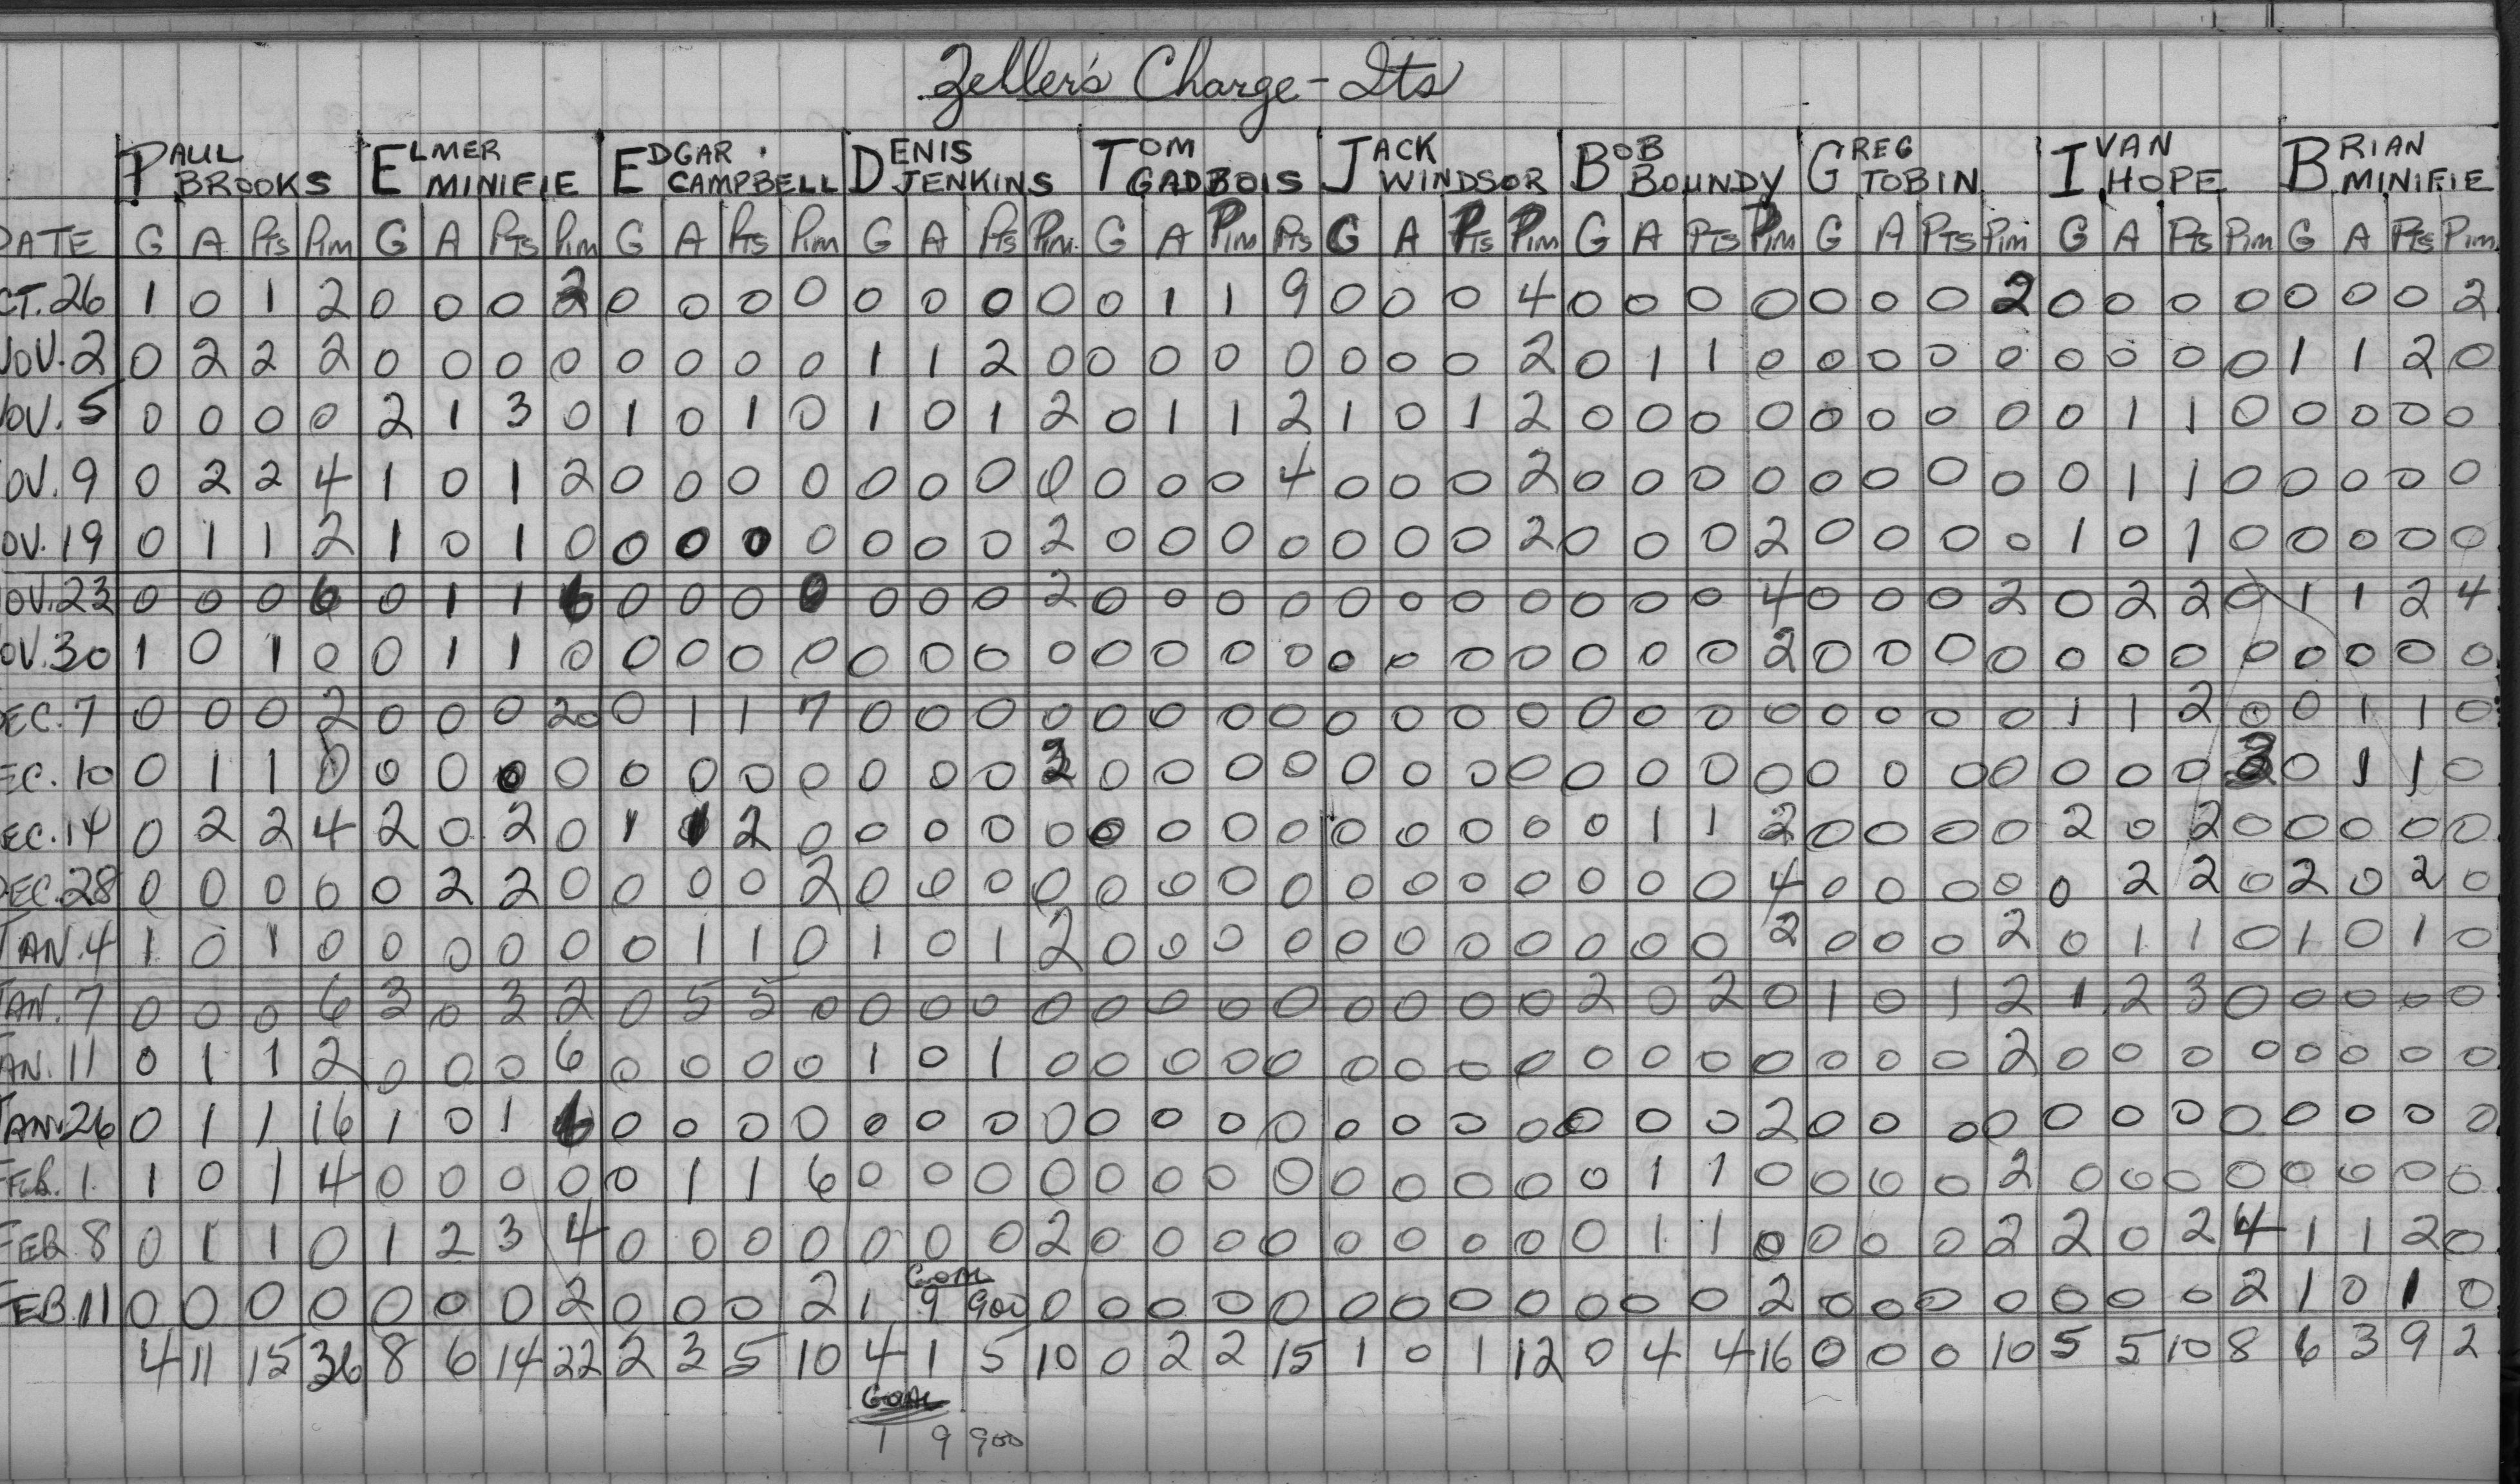 Zeller's Charge-Its
PAUL BROOKS ELMER MINIFIE EDGAR CAMPBELL DENIS JENKINS TOM GADBOIS JACK WINDSOR BOB BOUNDY GREG TOBIN IVAN HOPE BRIAN MINIFIE
DATE G A Pts Pim G A Pts Pim G A Pts Pim G A Pts Pim G A Pim Pts G A Pts Pim G A Pts Pim G A Pts Pim G A Pts Pim G A Pts Pim
CT.26 1 0 1 2 0 0 0 2 0 0 0 0 0 0 0 0 0 1 1 9 0 0 0 4 0 0 0 0 0 0 0 2 0 0 0 0 0 0 0 2
NOV.2 0 2 2 2 0 0 0 0 0 0 0 0 1 1 2 0 0 0 0 0 0 0 0 2 0 1 1 0 0 0 0 0 0 0 0 0 1 1 2 0
OV.5 0 0 0 0 2 1 3 0 1 0 1 0 1 0 1 2 0 1 1 2 1 0 1 2 0 0 0 0 0 0 0 0 0 1 1 0 0 0 0 0
OV.9 0 2 2 4 1 0 1 2 0 0 0 0 0 0 0 0 0 0 0 4 0 0 0 2 0 0 0 0 0 0 0 0 0 1 1 0 0 0 0 0
OV.19 0 1 1 2 1 0 1 0 0 0 0 0 0 0 0 2 0 0 0 0 0 0 0 2 0 0 0 2 0 0 0 0 1 0 1 0 0 0 0 0
OV.23 0 0 0 6 0 1 1 6 0 0 0 0 0 0 0 2 0 0 0 0 0 0 0 0 0 0 0 4 0 0 0 2 0 2 2 0 1 1 2 4
OV.30 1 0 1 0 0 1 1 0 0 0 0 0 0 0 0 0 0 0 0 0 0 0 0 0 0 0 0 2 0 0 0 0 0 0 0 0 0 0 0 0
EC.7 0 0 0 2 0 0 0 20 0 1 1 7 0 0 0 0 0 0 0 0 0 0 0 0 0 0 0 0 0 0 0 0 1 1 2 0 0 1 1 0
EC.10 0 1 1 0 0 0 0 0 0 0 0 0 0 0 0 2 0 0 0 0 0 0 0 0 0 0 0 0 0 0 0 0 0 0 0 2 0 1 1 0
EC.14 0 2 2 4 2 0 2 0 1 1 2 0 0 0 0 0 0 0 0 0 0 0 0 0 0 1 1 2 0 0 0 0 2 0 2 0 0 0 0 0
DEC.28 0 0 0 0 0 2 2 0 0 0 0 2 0 0 0 0 0 0 0 0 0 0 0 0 0 0 0 4 0 0 0 0 0 2 2 0 2 0 2 0
JAN.4 1 0 1 0 0 0 0 0 0 1 1 0 1 0 1 2 0 0 0 0 0 0 0 0 0 0 0 2 0 0 0 2 0 1 1 0 1 0 1 0
JAN.7 0 0 0 6 3 0 3 2 0 5 5 0 0 0 0 0 0 0 0 0 0 0 0 0 2 0 2 0 1 0 1 2 1 2 3 0 0 0 0 0
AN.11 0 1 1 2 0 0 0 6 0 0 0 0 1 0 1 0 0 0 0 0 0 0 0 0 0 0 0 0 0 0 0 2 0 0 0 0 0 0 0 0
JAN.26 0 1 1 16 1 0 1 6 0 0 0 0 0 0 0 0 0 0 0 0 0 0 0 0 0 0 0 2 0 0 0 0 0 0 0 0 0 0 0 0
FEB.1 1 0 1 4 0 0 0 0 0 1 1 6 0 0 0 0 0 0 0 0 0 0 0 0 0 1 1 0 0 0 0 2 0 0 0 0 0 0 0 0
FEB 8 0 1 1 0 1 2 3 4 0 0 0 0 0 0 0 2 0 0 0 0 0 0 0 0 0 1 1 0 0 0 0 2 2 0 2 4 1 1 2 0
FEB.11 0 0 0 0 0 0 0 2 0 0 0 2 1 9 900 0 0 0 0 0 0 0 0 0 0 0 0 2 0 0 0 0 0 0 0 2 1 0 1 0
4 11 15 36 8 6 14 22 2 3 5 10 4 1 5 10 0 2 2 15 1 0 1 12 0 4 4 16 0 0 0 10 5 5 10 8 6 3 9 2
GOAL
1 9 900